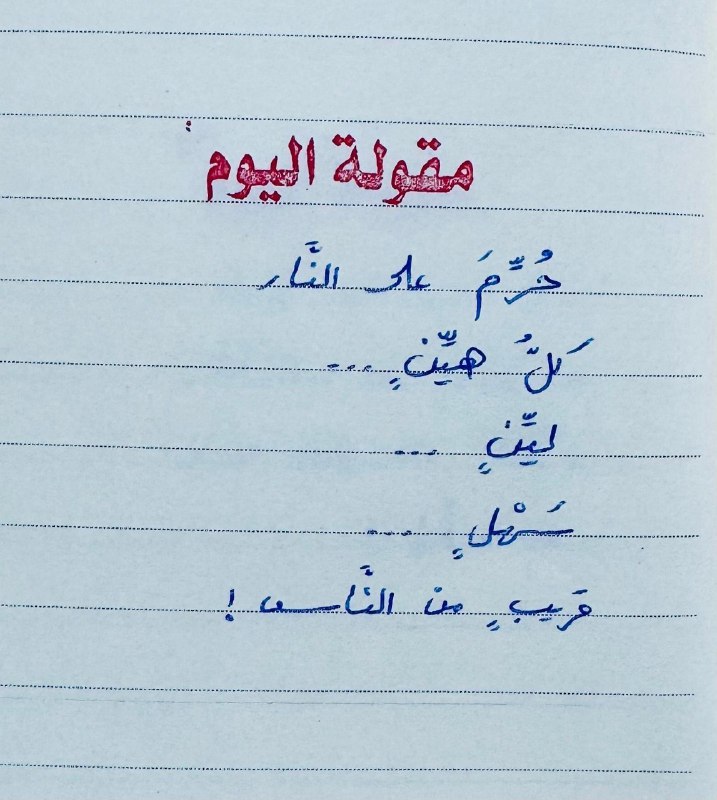 مقولة اليوم :
حُرِّمَ على النَّار
كَلُّ هيِّنٍ ...
ليِّنٍ ...
سَهْلٍ ...
قَريبٍ من النَّاس !